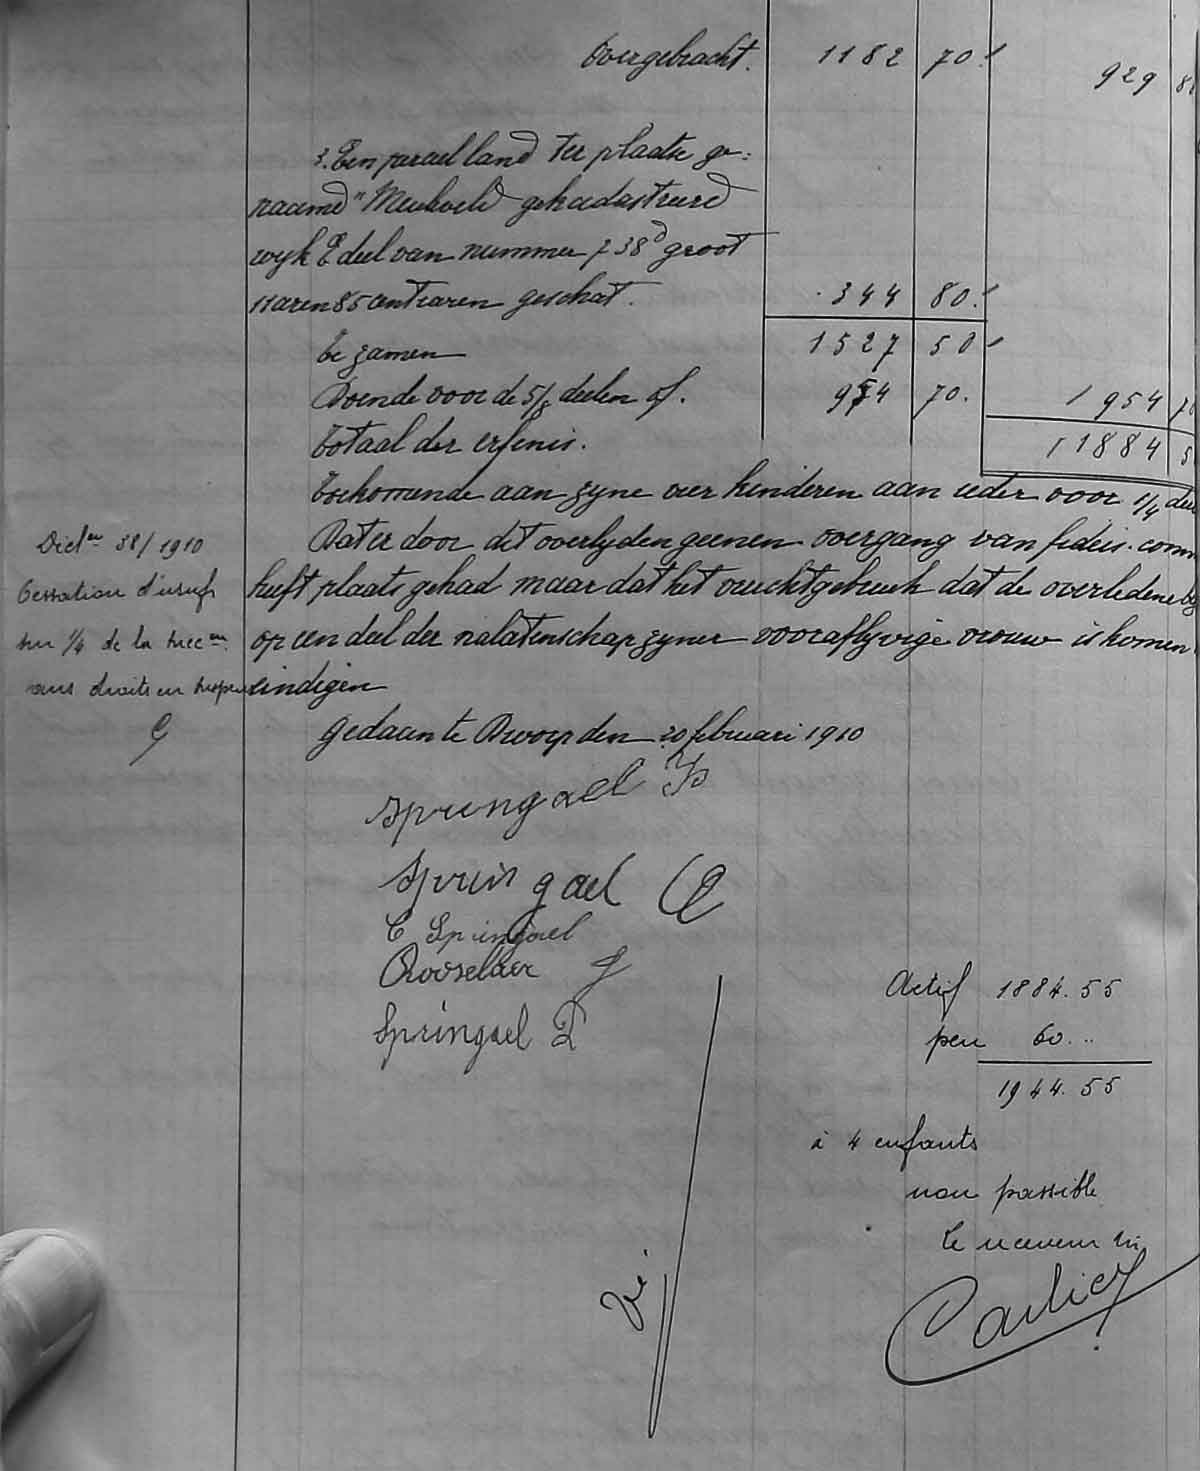 Overgebracht. 1182 70. 929 8
3. Een perceel land ter plaatse ge:
naamd "Meulveld gekadastreerd
wijk E deel van nummer 738d groot
11 aren 85 centiaren geschat. 344 80.
te zamen 1527 50
Doende voor de 5/8 deelen of. 954 70. 1954 70
totaal der erfenis. 11884 5
toekomende aan zyne vier kinderen aan ieder voor 1/4 deel
Dat er door dit overlyden geenen overgang van fideis. comm
heeft plaats gehad maar dat het vruchtgebruik dat de overledene
op een deel der nalatenschap zyner vooraflyvige vrouw is komen
eindigen
Decl.on 38/1910
Cessation d'usuf.
sur 1/4 de la succ.on
sans droits en suspens
gedaan te Dworp den 20 februari 1910
Springael
Springael
C Springael
Rooselaer J
Springael
Actif 1884.55
peu 60...
1944.55
à 4 enfants
non passible
Le receveur
Carlier